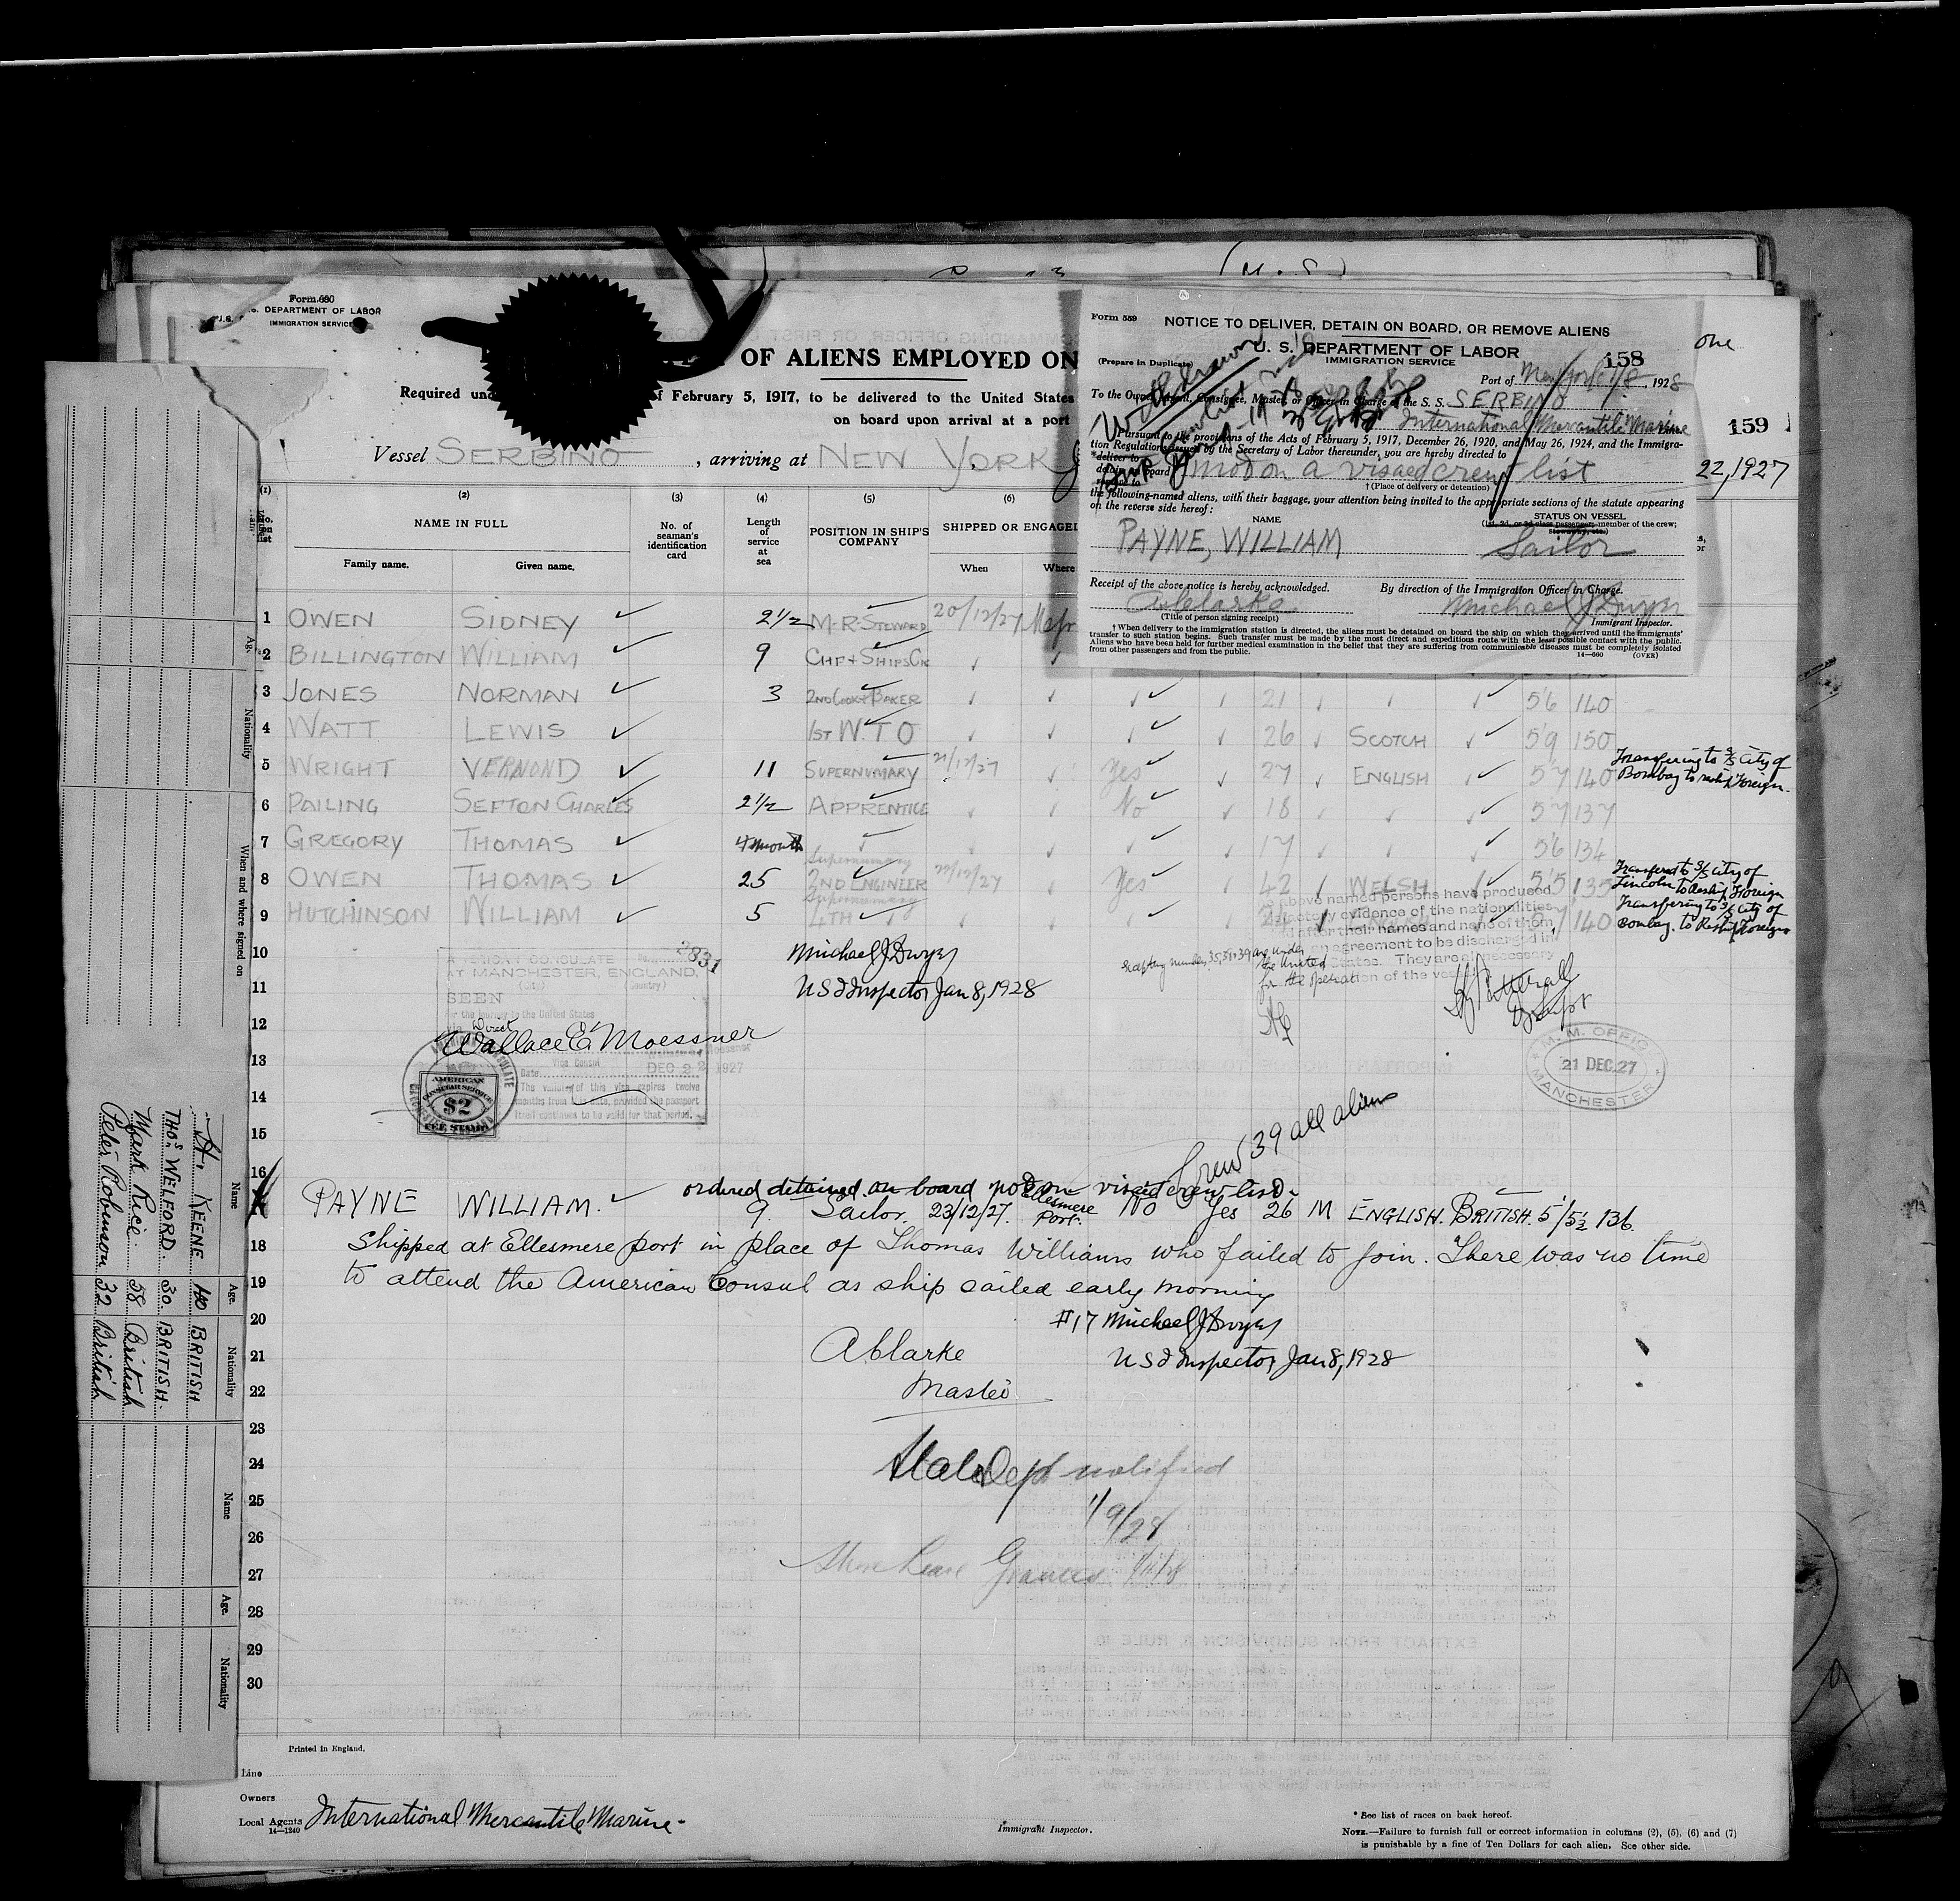 Form 680
U.S. DEPARTMENT OF LABOR
IMMIGRATION SERVICE
OF ALIENS EMPLOYED ON
Required und
f February 5, 1917, to be delivered to the United States
on board upon arrival at a port
Vessel SERBINO, arriving at NEW YORK
22, 1927
one
159
Form 559
NOTICE TO DELIVER, DETAIN ON BOARD, OR REMOVE ALIENS
U. S. DEPARTMENT OF LABOR
IMMIGRATION SERVICE
(Prepare in Duplicate)
158
Port of New York 1/8, 1928
To the Owner, Agent, Consignee, Master, or Officer in Charge of the S. S. SERBINO
International Mercantile Marine
Pursuant to the provisions of the Acts of February 5, 1917, December 26, 1920, and May 26, 1924, and the Immigra-
tion Regulations issued by the Secretary of Labor thereunder, you are hereby directed to
*deliver to
detain on board not on a visaed crew list
remove to
† (Place of delivery or detention)
the following-named aliens, with their baggage, your attention being invited to the appropriate sections of the statute appearing
on the reverse side hereof:
NAME
STATUS ON VESSEL
(1st, 2d, or 3d class passenger; member of the crew;
stowaway, etc.)
PAYNE, WILLIAM Sailor
Receipt of the above notice is hereby acknowledged. By direction of the Immigration Officer in Charge.
A Clarke Michael J Dwyer
(Title of person signing receipt) Immigrant Inspector.
† When delivery to the immigration station is directed, the aliens must be detained on board the ship on which they arrived until the immigrants'
transfer to such station begins. Such transfer must be made by the most direct and expeditious route with the least possible contact with the public.
Aliens who have been held for further medical examination in the belief that they are suffering from communicable diseases must be completely isolated
from other passengers and from the public.
14—660 (OVER)
(1) (2) (3) (4) (5) (6)
No. on list
NAME IN FULL
Family name. Given name.
No. of seaman's identification card
Length of service at sea
POSITION IN SHIP'S COMPANY
SHIPPED OR ENGAGED
When Where
1 OWEN SIDNEY 2½ M.R. STEWARD 20/12/27
2 BILLINGTON WILLIAM 9 CHF & SHIPS CK
3 JONES NORMAN 3 2ND COOK & BAKER 21 5'6 140
4 WATT LEWIS 1ST W.T O 26 SCOTCH 5'9 150
5 WRIGHT VERNOND 11 SUPERNUMARY 21/12/27 Yes 27 ENGLISH 5'7 140 Transfering to S/S City of
Bombay to reship Foreign.
6 PAILING SEFTON CHARLES 2½ APPRENTICE No 18 5'7 137
7 GREGORY THOMAS 4 month 17 5'6 134
8 OWEN THOMAS 25 Supernumary 2ND ENGINEER 22/12/27 Yes 42 WELSH 5'5 135 Transfered to S/S City of
Lincoln to Reship Foreign
9 HUTCHINSON WILLIAM 5 Supernumary 4TH 5'7 140 Transfering to S/S City of
Bombay. to Reship Foreign
10
11
12
13
14
15
16
Michael J Dwyer
U S I Inspector Jan 8, 1928
2831
AMERICAN CONSULATE
AT MANCHESTER, ENGLAND,
(City) (Country)
SEEN
For the journey to the United States
via Direct
Wallace E. Moessner
Vice Consul
Date DEC 22 1927
The validity of this visa expires twelve
months from this date, provided the passport
itself continues to be valid for that period.
AMERICAN
CONSULAR SERVICE
$2
FEE STAMP
above named persons have produced
evidence of the nationalities
after their names and none of them
agreement to be discharged in
the United States. They are all necessary
for the operation of the vessel
M. M. OFFICE
21 DEC. 27
MANCHESTER
Crew 39 all aliens
ordered detained on board not on visaed crew list
17 PAYNE WILLIAM. 9. Sailor. 23/12/27. Ellesmere Port. No Yes 26 M ENGLISH. BRITISH. 5'/5½ 136.
18 Shipped at Ellesmere port in place of Thomas Williams who failed to join. There was no time
19 to attend the American Consul as ship sailed early morning
20 #17 Michael J Dwyer
21 A Clarke U S I Inspector Jan 8, 1928
22 Master
23
24 State Dept notified
25 1/9/28
26
27 Shore Leave Granted
28
29
30
Printed in England.
Line
Owners
Local Agents International Mercantile Marine.
14—1240
Immigrant Inspector.
* See list of races on back hereof.
NOTE.—Failure to furnish full or correct information in columns (2), (5), (6) and (7)
is punishable by a fine of Ten Dollars for each alien. See other side.
Age. Nationality When and where signed on
Name Age. Nationality
H. KEENE 40 BRITISH
THOS. WELFORD. 30. BRITISH.
Mark Rice. 58 British
Peter Robinson 32 British
Name Age. Nationality